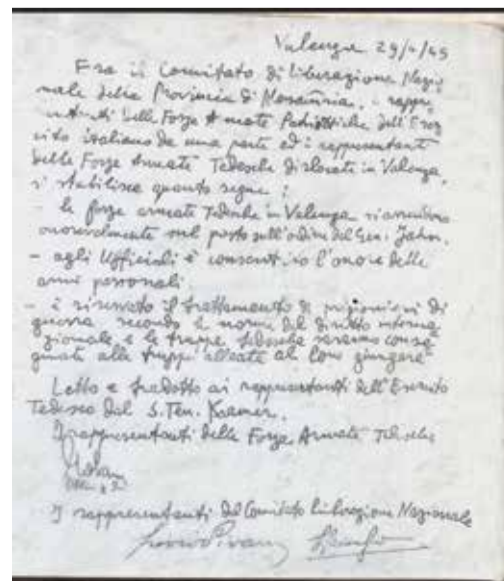 Valenza 29/4/45
Fra il Comitato di Liberazione Nazio
nale della Provincia di i rappre
sentanti delle Forze Armate Patriottiche dell'Eser
cito italiano da una parte ed i rappresentanti
delle Forze Armate Tedesche dislocate in Valenza,
si stabilisce quanto segue:
- le forze armate Tedesche in Valenza si arrendono
onorevolmente sul posto sull'ordine del Gen. Jahn.
- agli Ufficiali è consentito l'onore delle
armi personali.
- è riservato il trattamento di prigionieri di
guerra secondo le norme del diritto interna
zionale, e le truppe tedesche saranno conse
gnate alle truppe alleate al loro giungere
Letto e tradotto ai rappresentanti dell'Esercito
Tedesco dal S.Ten. Kramer.
I rappresentanti delle Forze Armate Tedesche
I rappresentanti del Comitato Liberazione Nazionale